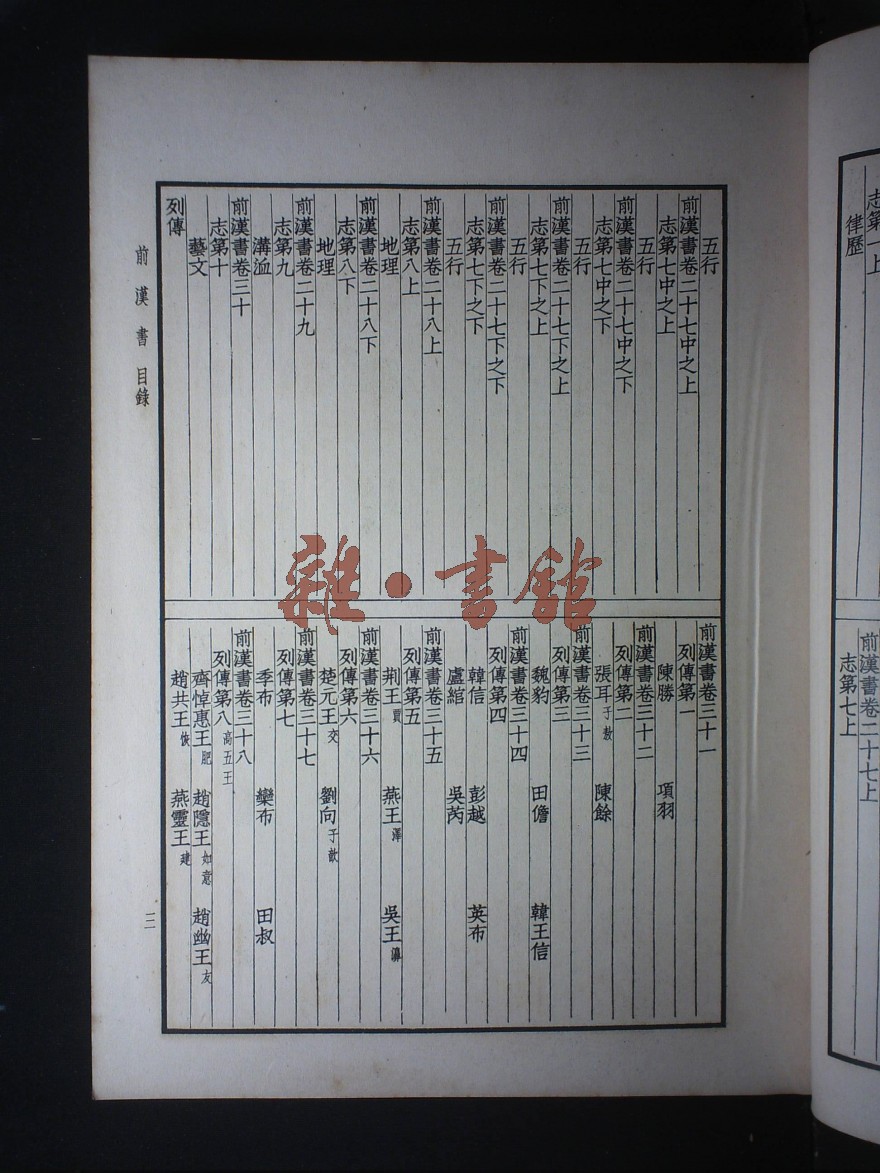 志第一上
律歷
前漢書卷二十七上
志第七上
五行
前漢書卷二十七中之上
志第七中之上
五行
前漢書卷二十七中之下
志第七中之下
五行
前漢書卷二十七下之上
志第七下之上
五行
前漢書卷二十七下之下
志第七下之下
五行
前漢書卷二十八上
志第八上
地理
前漢書卷二十八下
志第八下
地理
前漢書卷二十九
志第九
溝洫
前漢書卷三十
志第十
藝文
列傳
前漢書卷三十一
列傳第一
陳勝 項羽
前漢書卷三十二
列傳第二
張耳 子敖 陳餘
前漢書卷三十三
列傳第三
魏豹 田儋 韓王信
前漢書卷三十四
列傳第四
韓信 彭越 英布
盧綰 吳芮
前漢書卷三十五
列傳第五
荆王 賈 燕王 澤 吳王 濞
前漢書卷三十六
列傳第六
楚元王 交 劉向 子歆
前漢書卷三十七
列傳第七
季布 欒布 田叔
前漢書卷三十八
列傳第八 高五王
齊悼惠王 肥 趙隱王 如意 趙幽王 友
趙共王 恢 燕靈王 建
前漢書 目錄
三
雜·書館